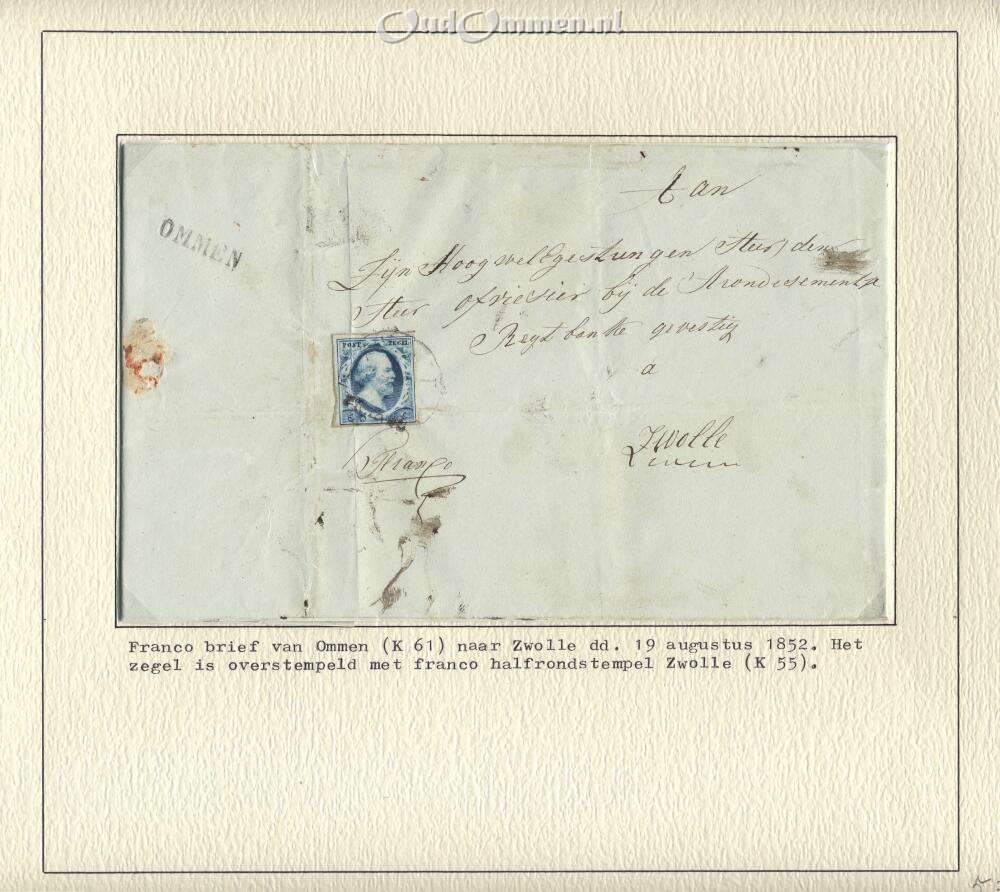 OudOmmen.nl
Aan
OMMEN
Zijn Hoogweledgestrengen Heer, den
Heer officier bij de Arondisements
Regtbanke gevestig
a
POST ZEGEL
Zwolle
Franco
Franco brief van Ommen (K 61) naar Zwolle dd. 19 augustus 1852. Het
zegel is overstempeld met franco halfrondstempel Zwolle (K 55).